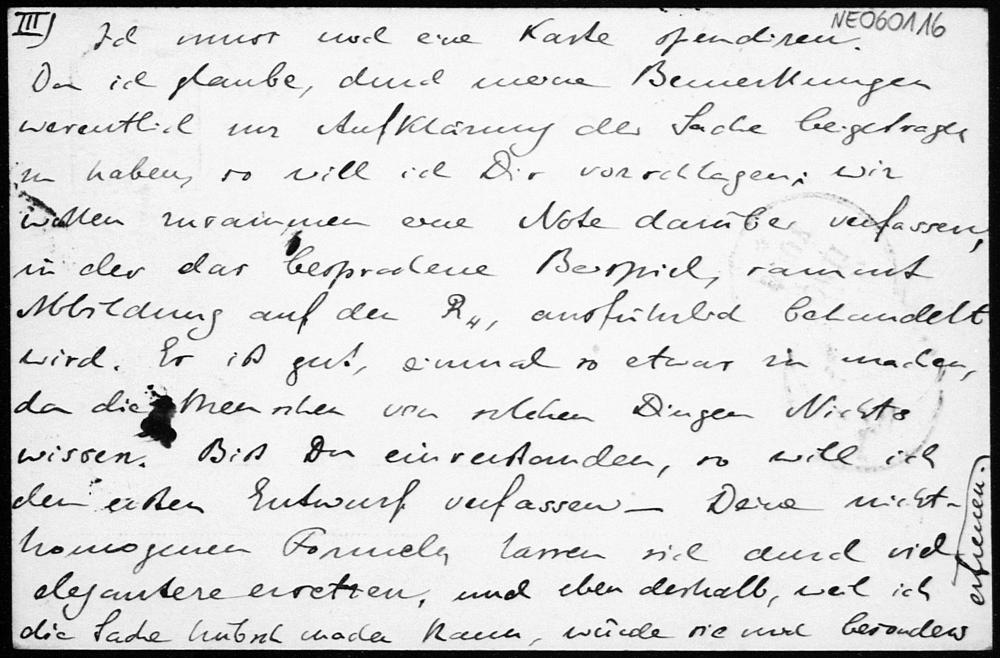 III)
NE060116
Ich muss noch eine Karte spendiren.
Da ich glaube, durch meine Bemerkungen
wesentlich zur Aufklärung der Sache beigetragen
zu haben, so will ich Dir vorschlagen: wir
wollen zusammen eine Note darüber verfassen,
in der das besprochene Beispiel, sammt
Abbildung auf den R4, ausführlich behandelt
wird. Es ist gut, einmal so etwas zu machen,
da die Menschen von solchen Dingen Nichts
wissen. Bist Du einverstanden, so will ich
den ersten Entwurf verfassen — Deine nicht-
homogenen Formeln lassen sich durch viel
elegantere ersetzen, und eben deshalb, weil ich
die Sache hübsch machen kann, würde sie mich besonders
erfreuen.